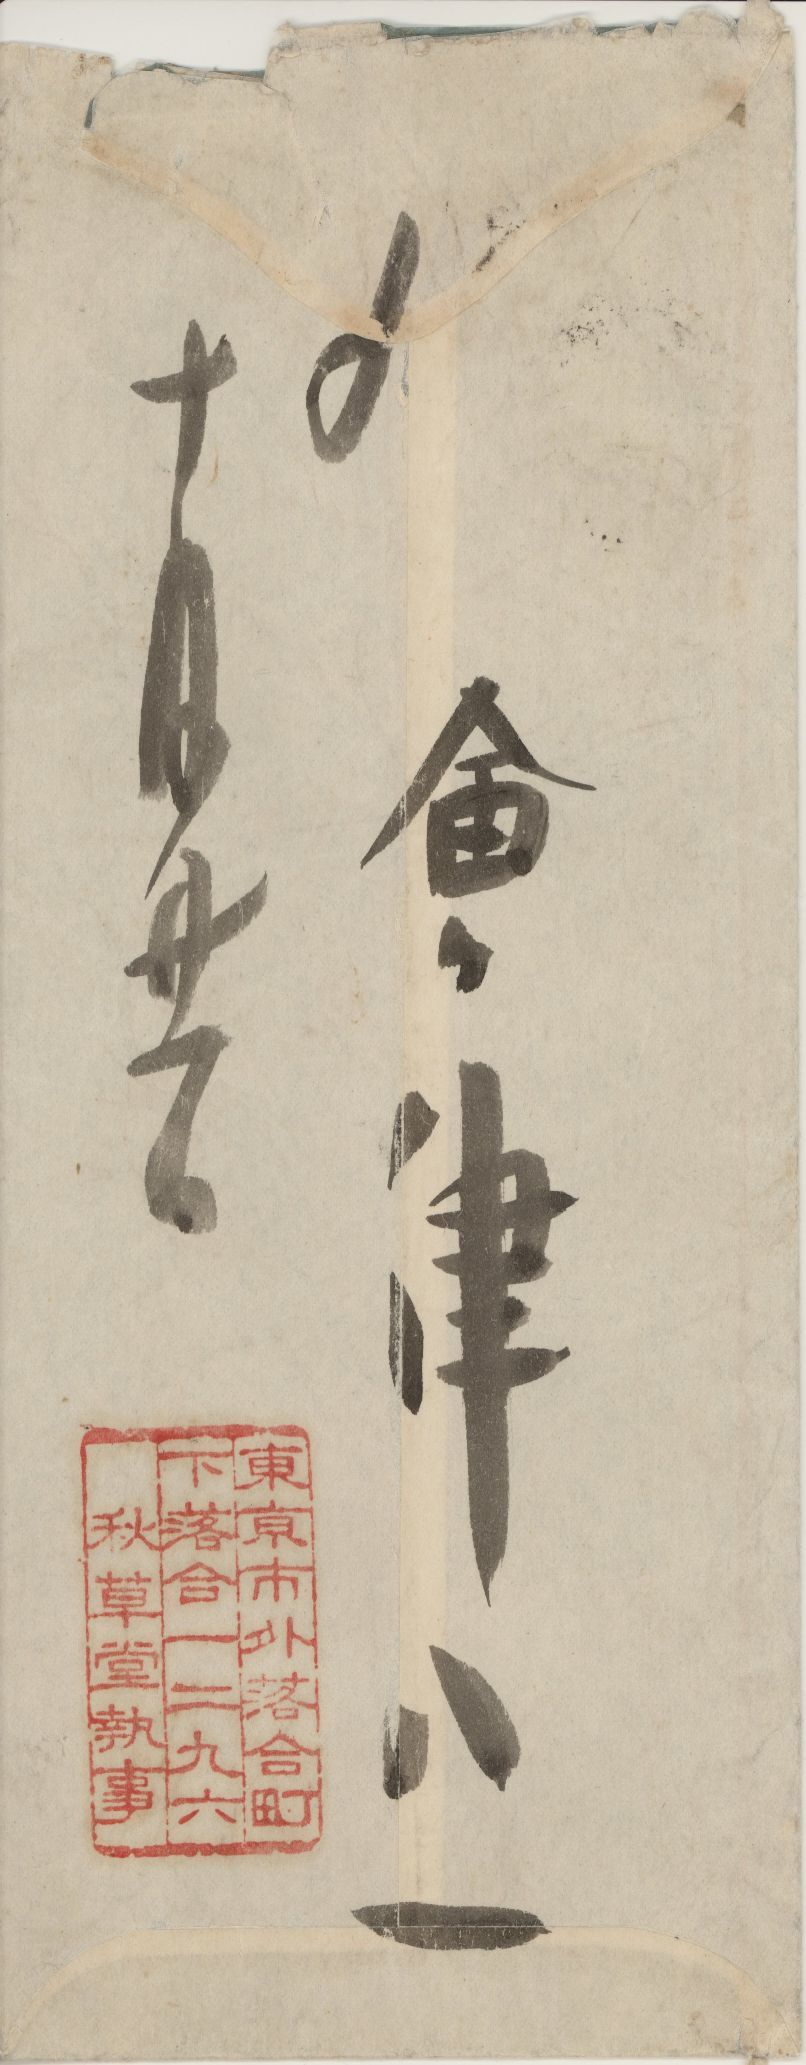 〆
會津八一
十月廿一日
東京市外落合町
下落合一二九六
秋草堂執事